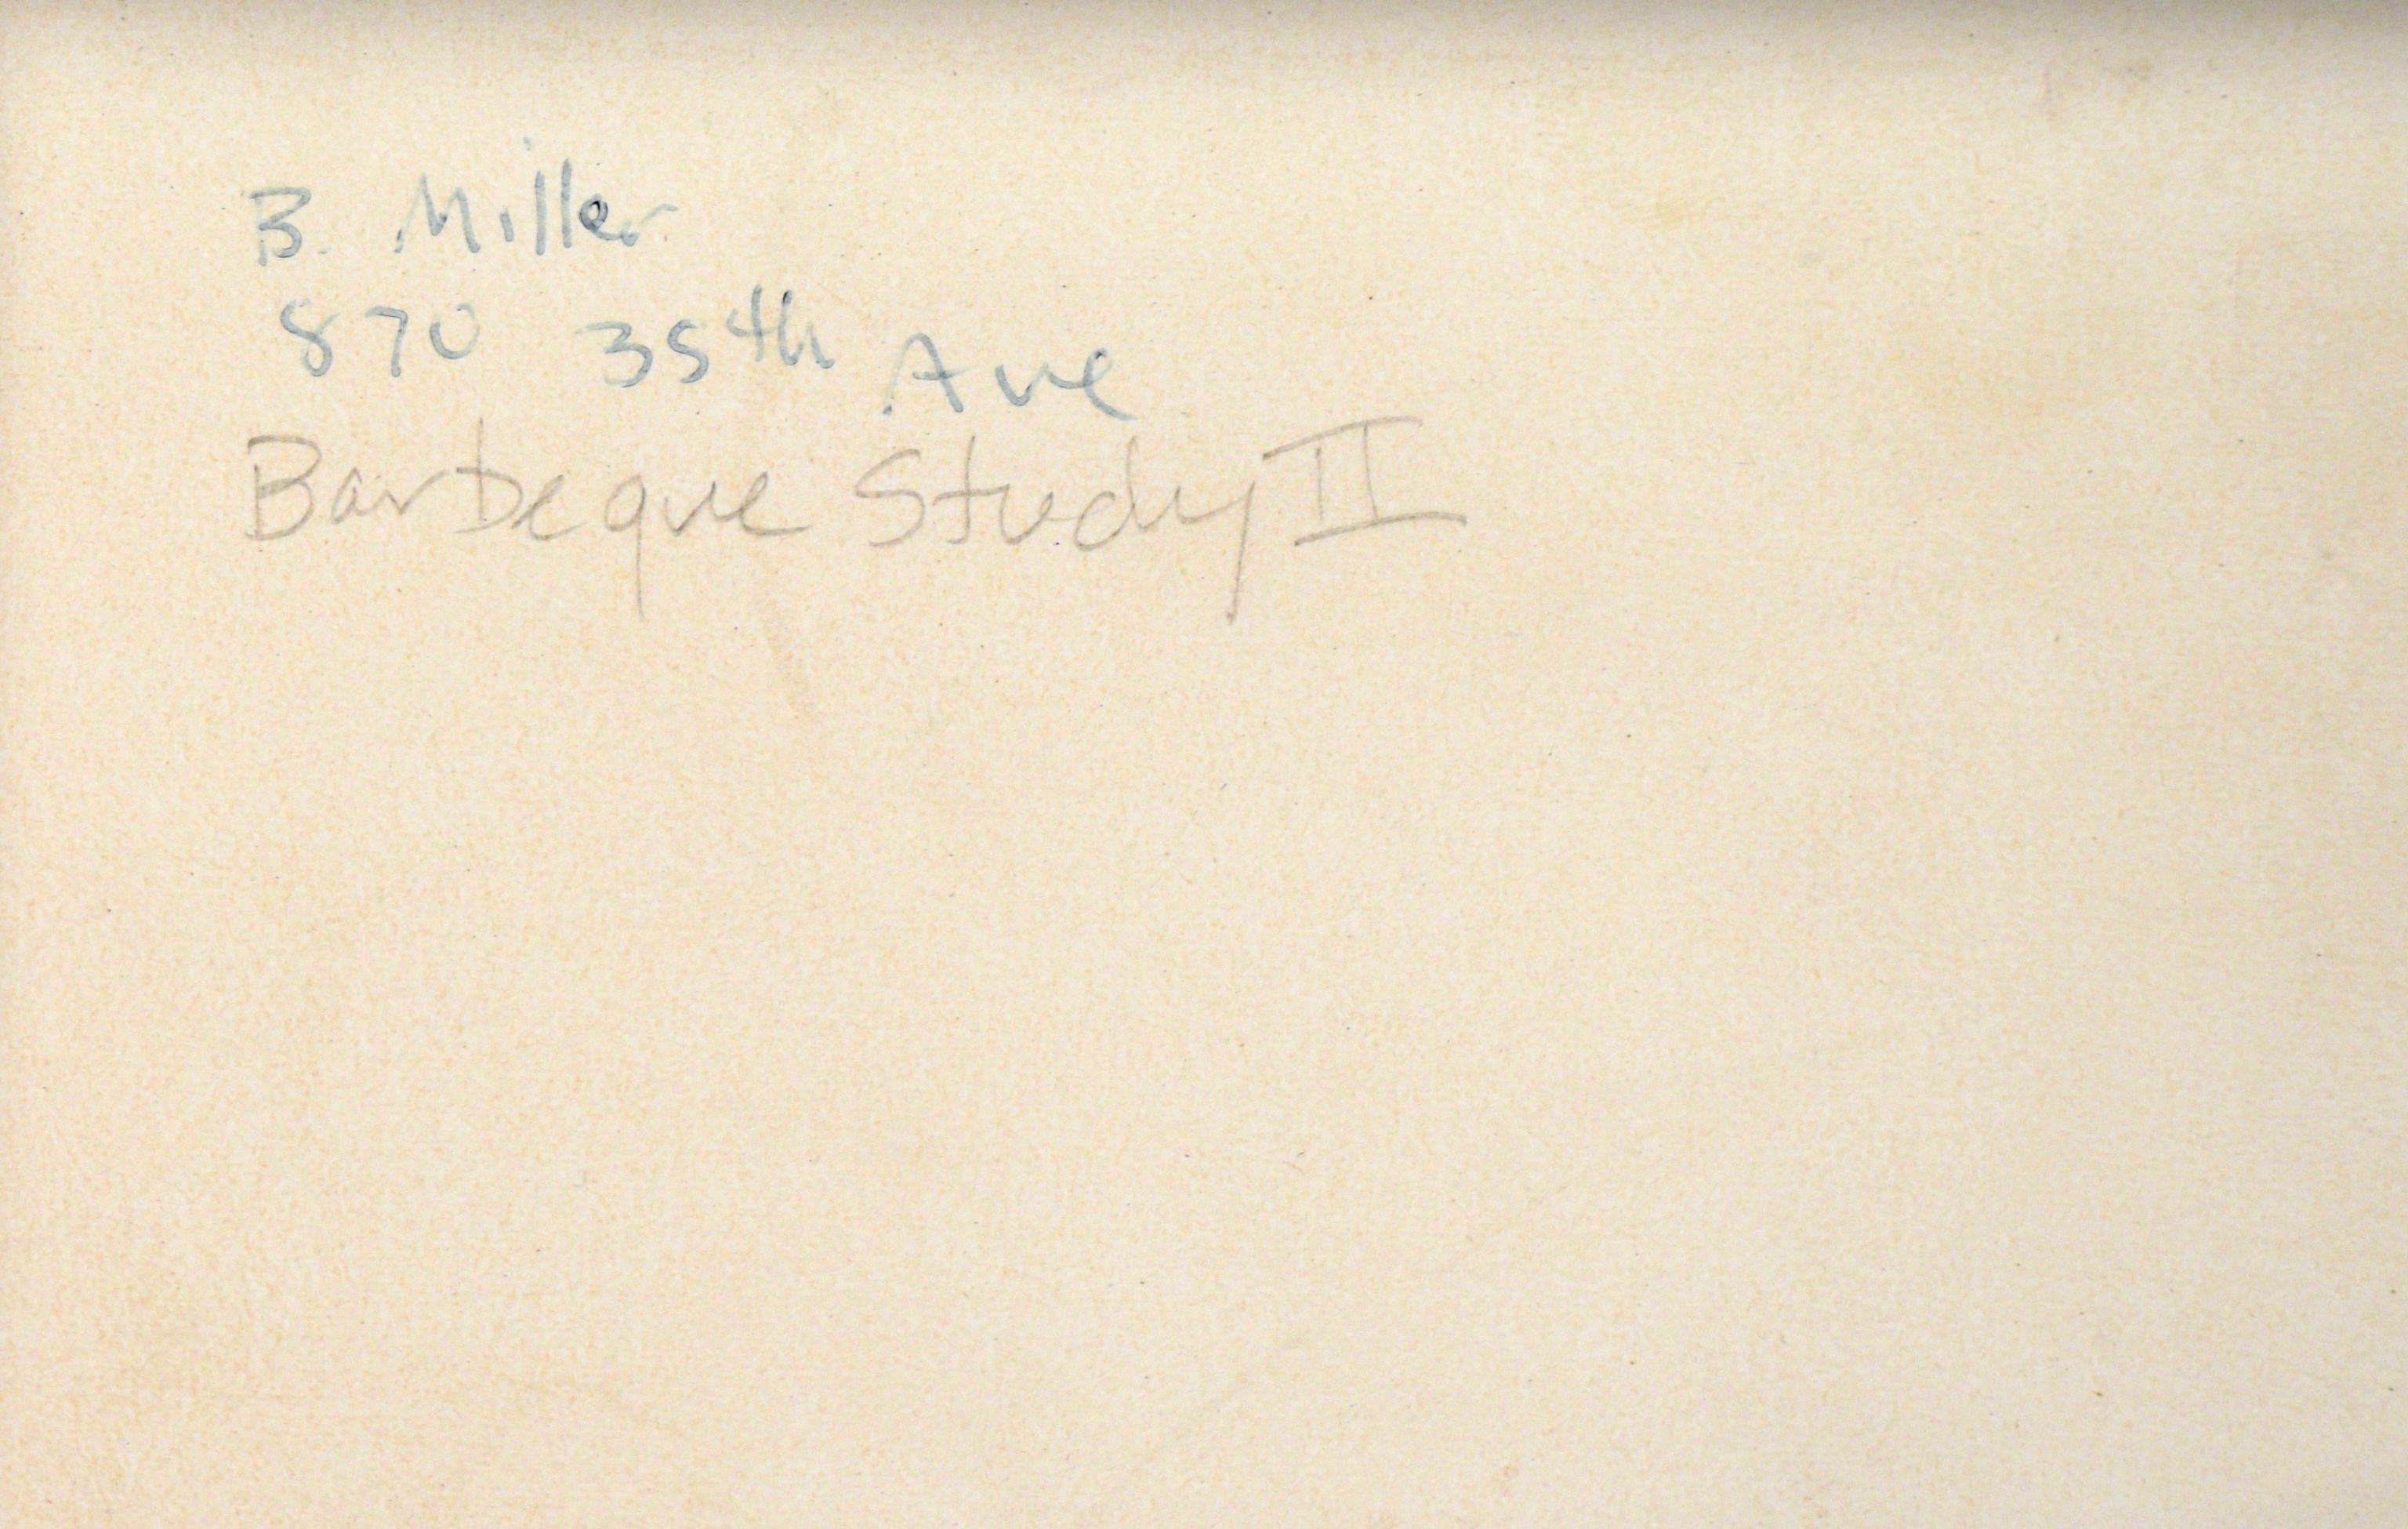 B. Miller
870 35th Ave
Barbeque Study II